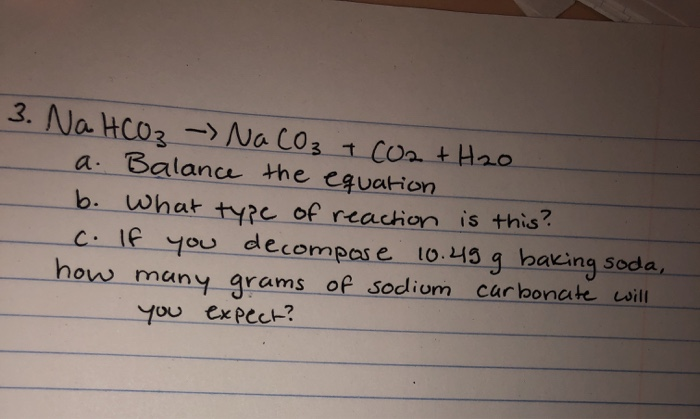 3. NaHCO3 -> NaCO3 + CO2 + H2O
a. Balance the equation
b. What type of reaction is this?
c. If you decompose 10.49 g baking soda,
how many grams of sodium carbonate will
you expect?